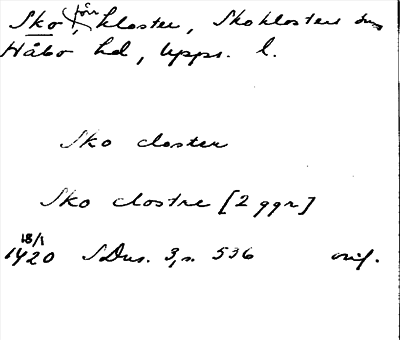 Sko, förr kloster, Skoklosters sn
Håbo hd, Upps. l.
Sko closter
Sko clostre [2 ggr]
18/1
1420 SDns. 3, s. 536 orig.